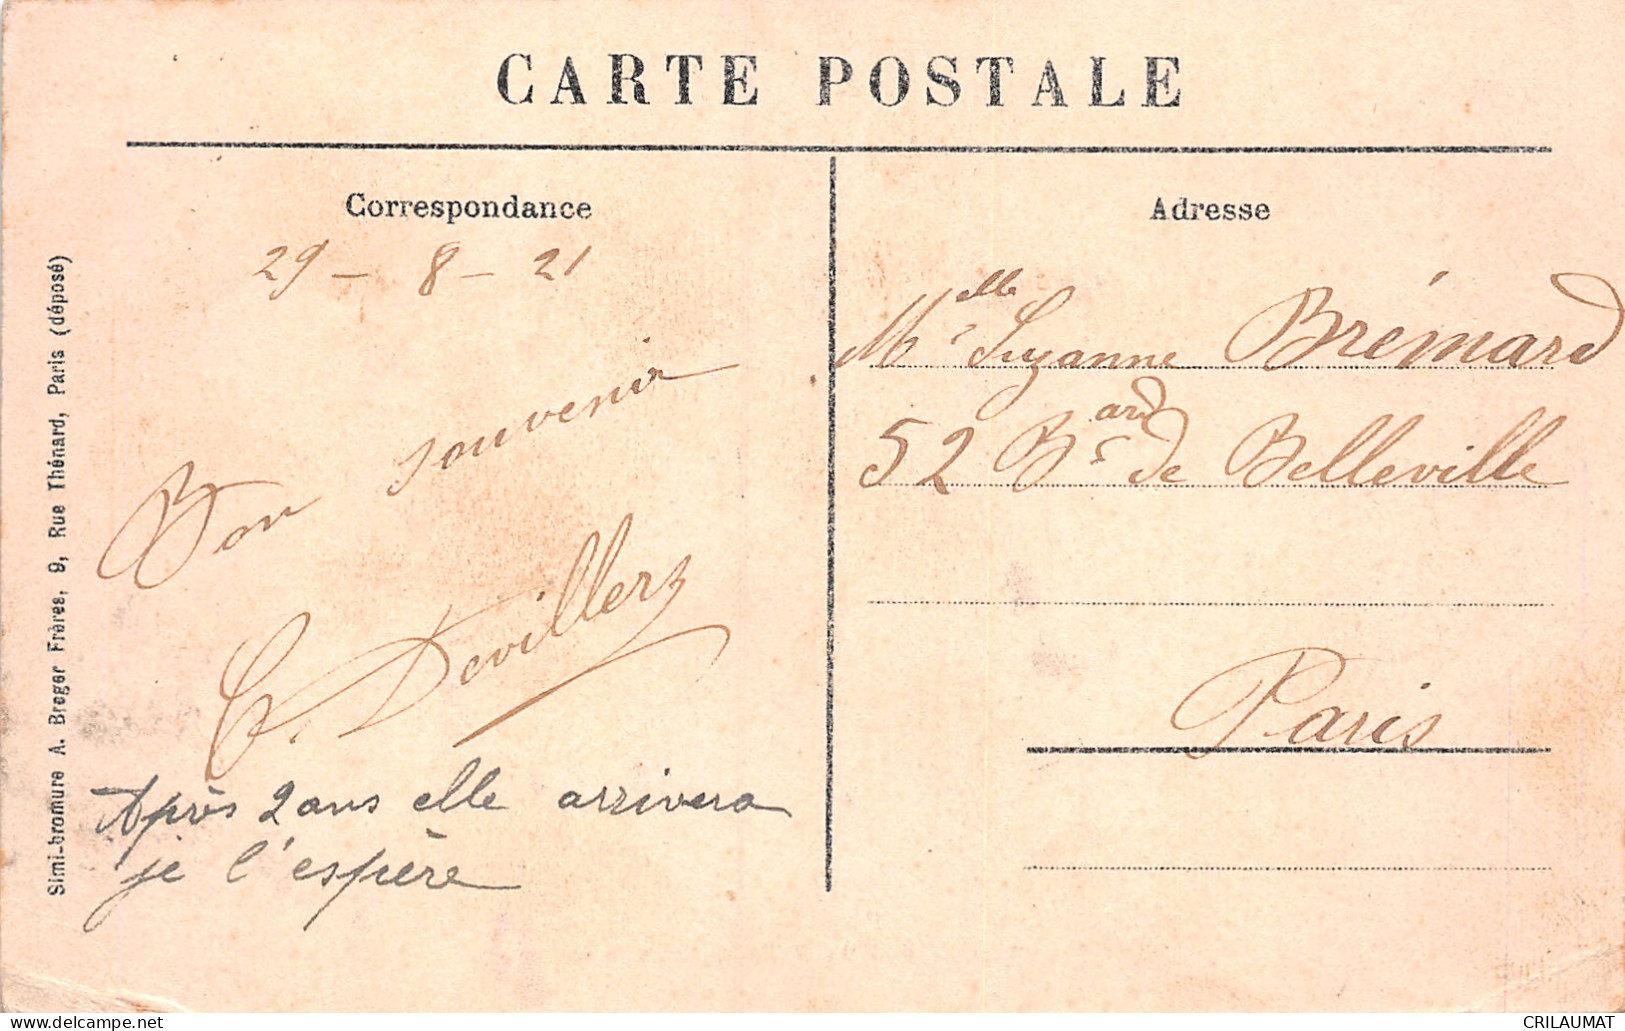 CARTE POSTALE
Correspondance
29 - 8 - 21
Bon souvenir
C. Devillerz
Après 2 ans elle arrivera
je l'espère
Adresse
Melle Suzanne Brémard
52 Bard de Belleville
Paris
Simi-bromure A. Breger Frères, 9, Rue Thénard, Paris (déposé)
CRILAUMAT